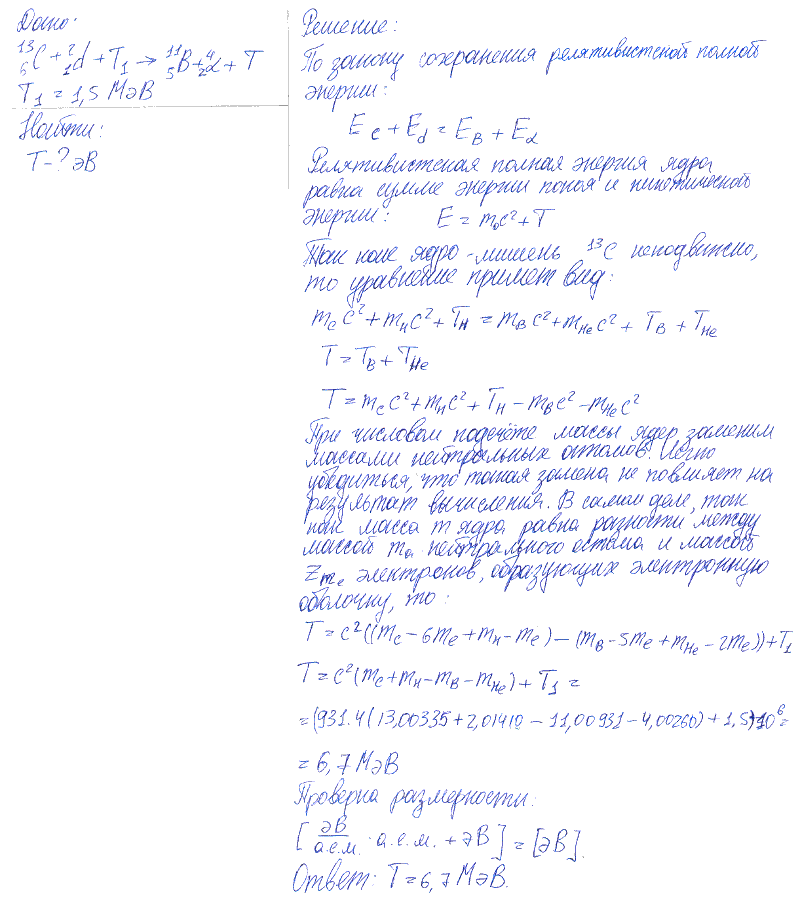 Дано:
¹³₆C + ²₁d + T₁ → ¹¹₅B + ⁴₂α + T
T₁ = 1,5 МэВ
Найти:
T - ? эВ
Решение:
По закону сохранения релятивистской полной
энергии:
E_C + E_d = E_B + E_α
Релятивистская полная энергия ядра
равна сумме энергии покоя и кинетической
энергии: E = m₀c² + T
Так как ядро-мишень ¹³C неподвижно,
то уравнение примет вид:
m_C c² + m_H c² + T_H = m_B c² + m_He c² + T_B + T_He
T = T_B + T_He
T = m_C c² + m_H c² + T_H - m_B c² - m_He c²
При числовом подсчёте массы ядер заменим
массами нейтральных атомов. Легко
убедиться, что такая замена не повлияет на
результат вычисления. В самом деле, так
как масса m ядра равна разности между
массой mₐ нейтрального атома и массой
Zmₑ электронов, образующих электронную
оболочку, то:
T = c²((m_C - 6mₑ + m_H - mₑ) - (m_B - 5mₑ + m_He - 2mₑ)) + T₁
T = c²(m_C + m_H - m_B - m_He) + T₁ =
= (931.4(13,00335 + 2,01410 - 11,00931 - 4,00260) + 1,5)·10⁶ =
= 6,7 МэВ
Проверка размерности:
[эВ/а.е.м. · а.е.м. + эВ] = [эВ].
Ответ: T = 6,7 МэВ.